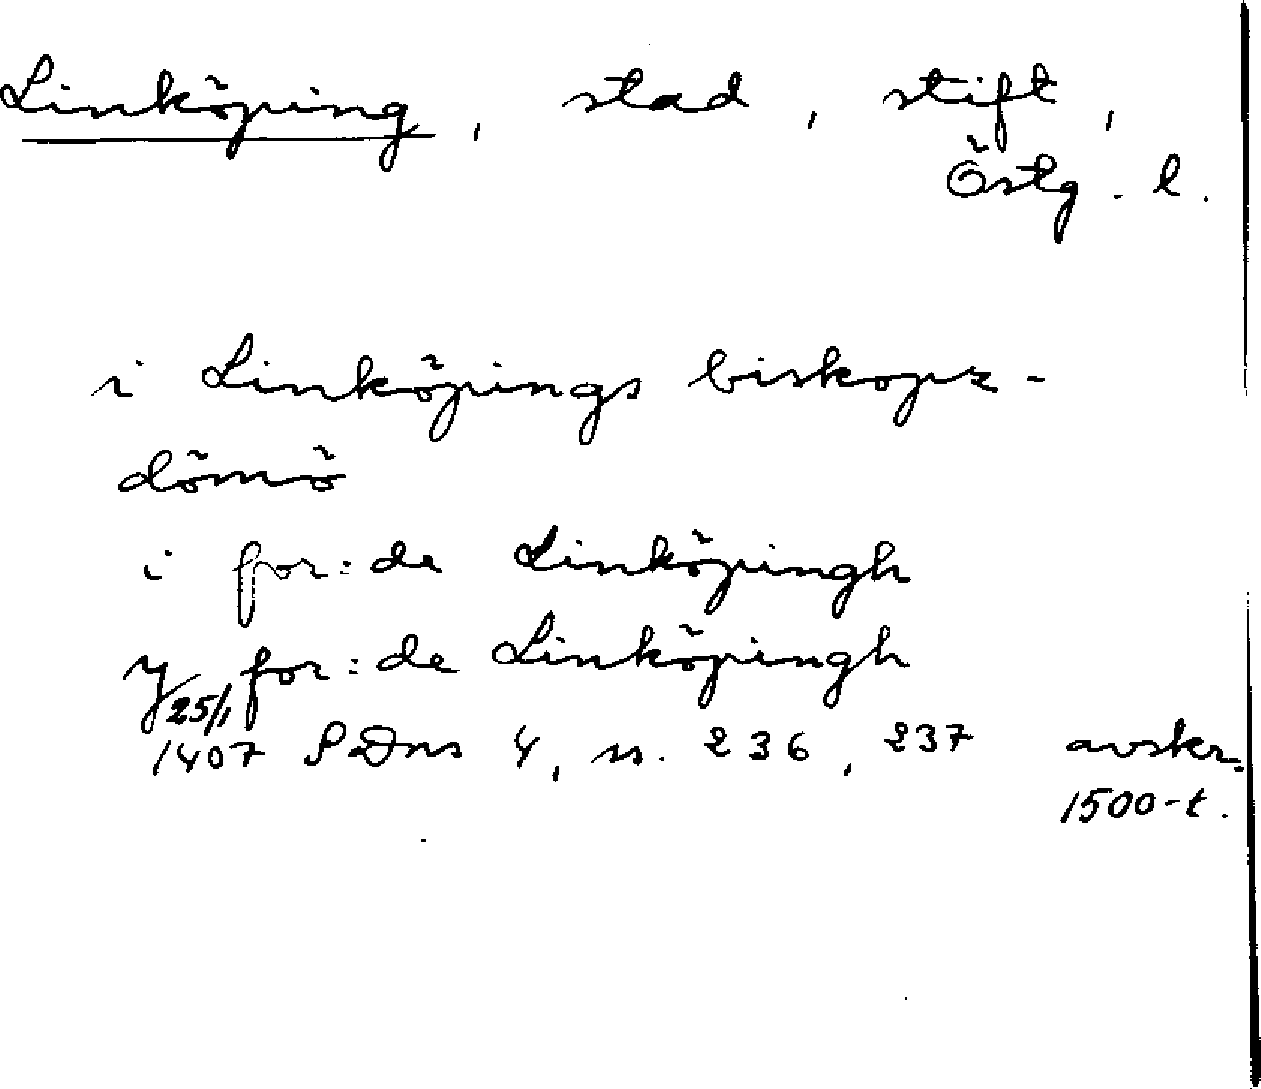 Linköping, stad, stift,
Östg. l.
i Linköpings biskopz-
dömö
i for:de Linköpingh
y for:de Linköpingh
25/1
1407 SDns 4, n. 236, 237 avskr.
1500-t.